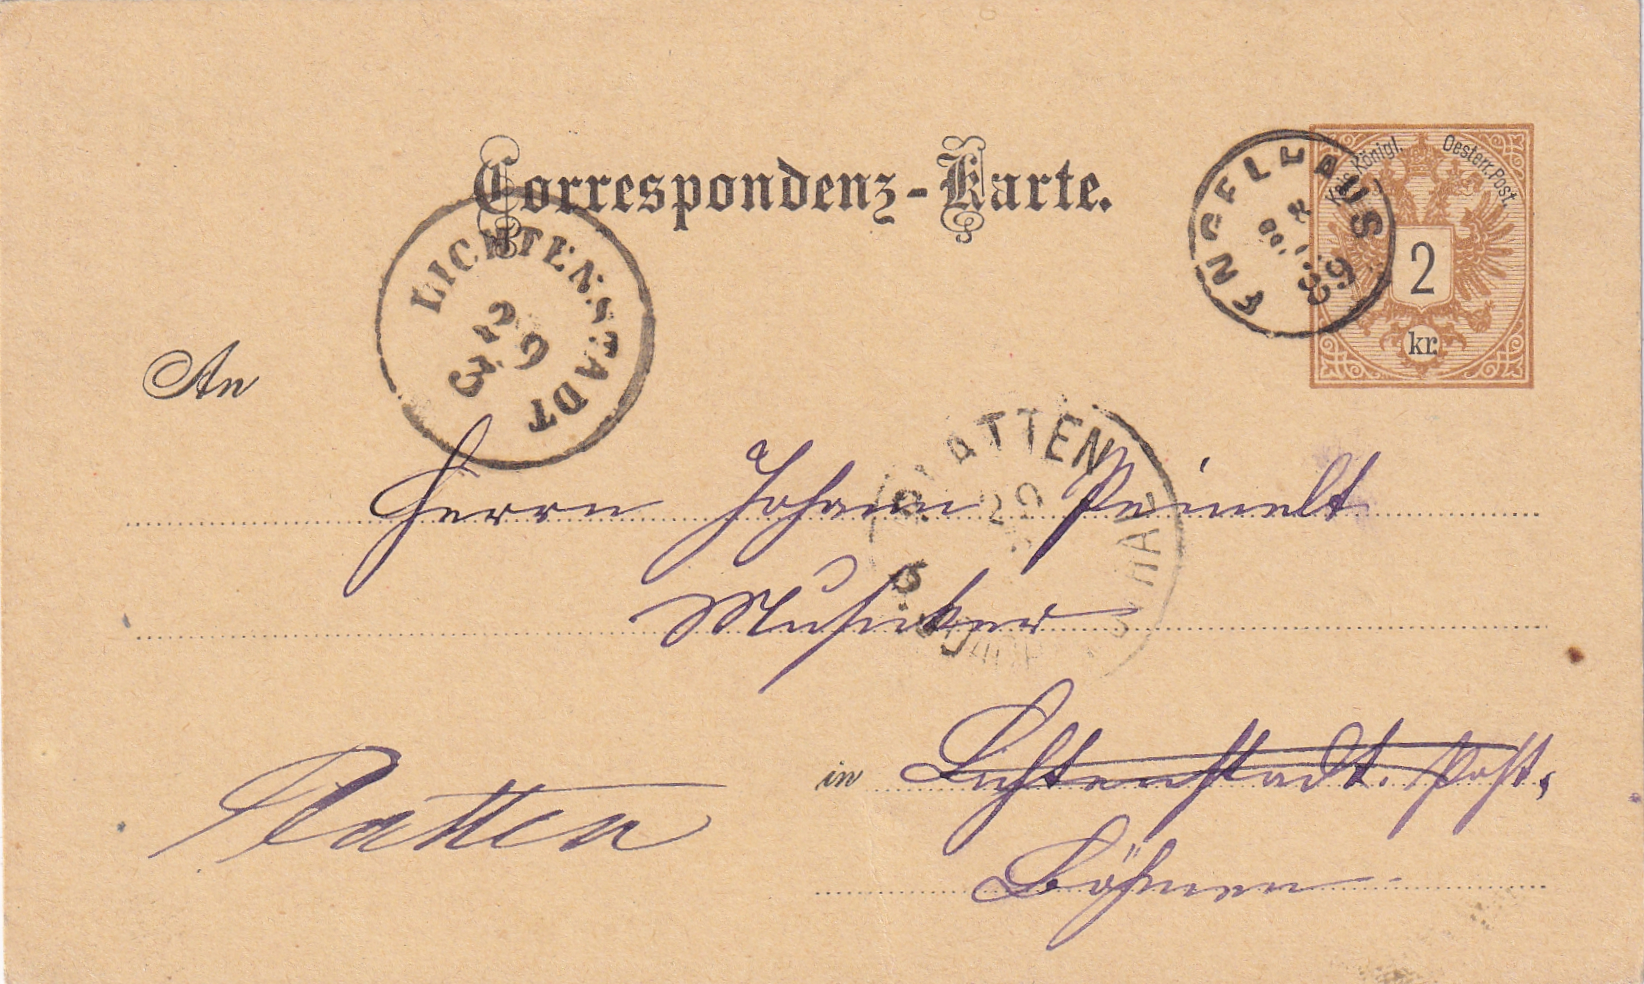 Correspondenz-Karte.
Kais. Königl. Oesterr. Post.
2
kr.
ENGELHAUS
LICHTENSTADT
29
3
An
PLATTEN
29
Herrn Johann Peinelt
Musiker
in Lichtenstadt. Post,
Platten
Böhmen